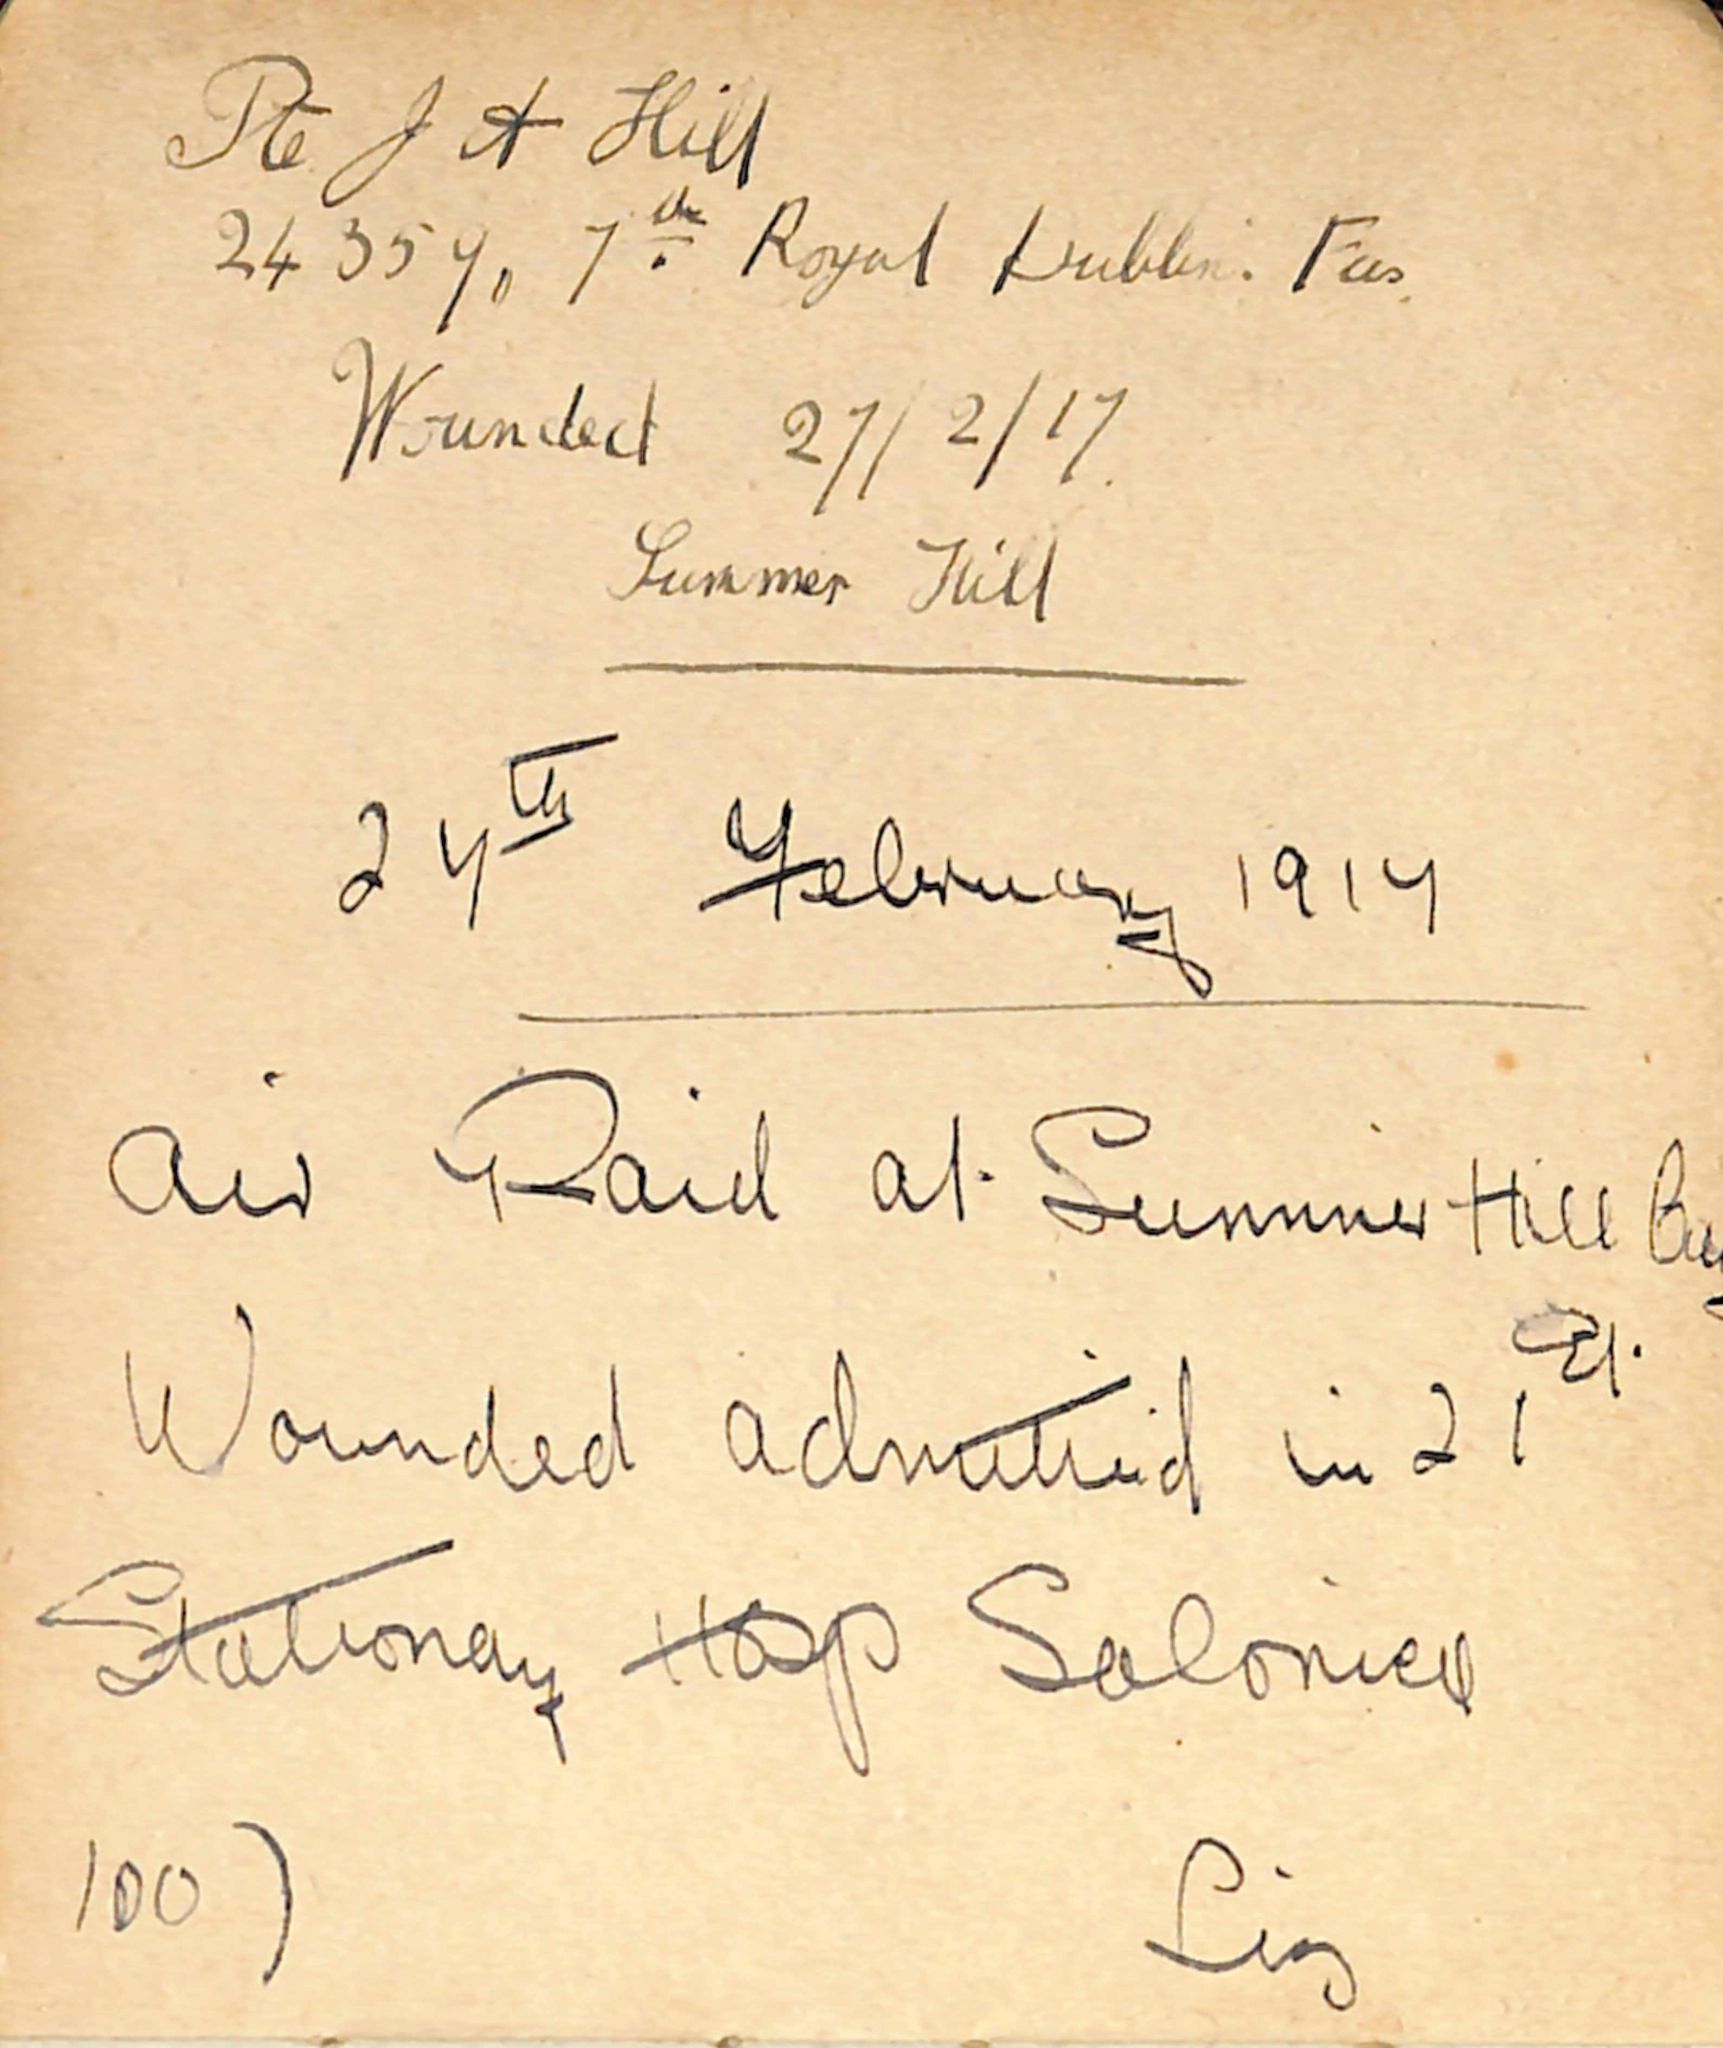 Pte J A Hill
24359, 7th Royal Dublin. Fus.
Wounded 27/2/17.
Summer Hill
27th February 1917
Air Raid at Summer Hill
Wounded admitted in 21st
Stationary Hosp Salonica
100)